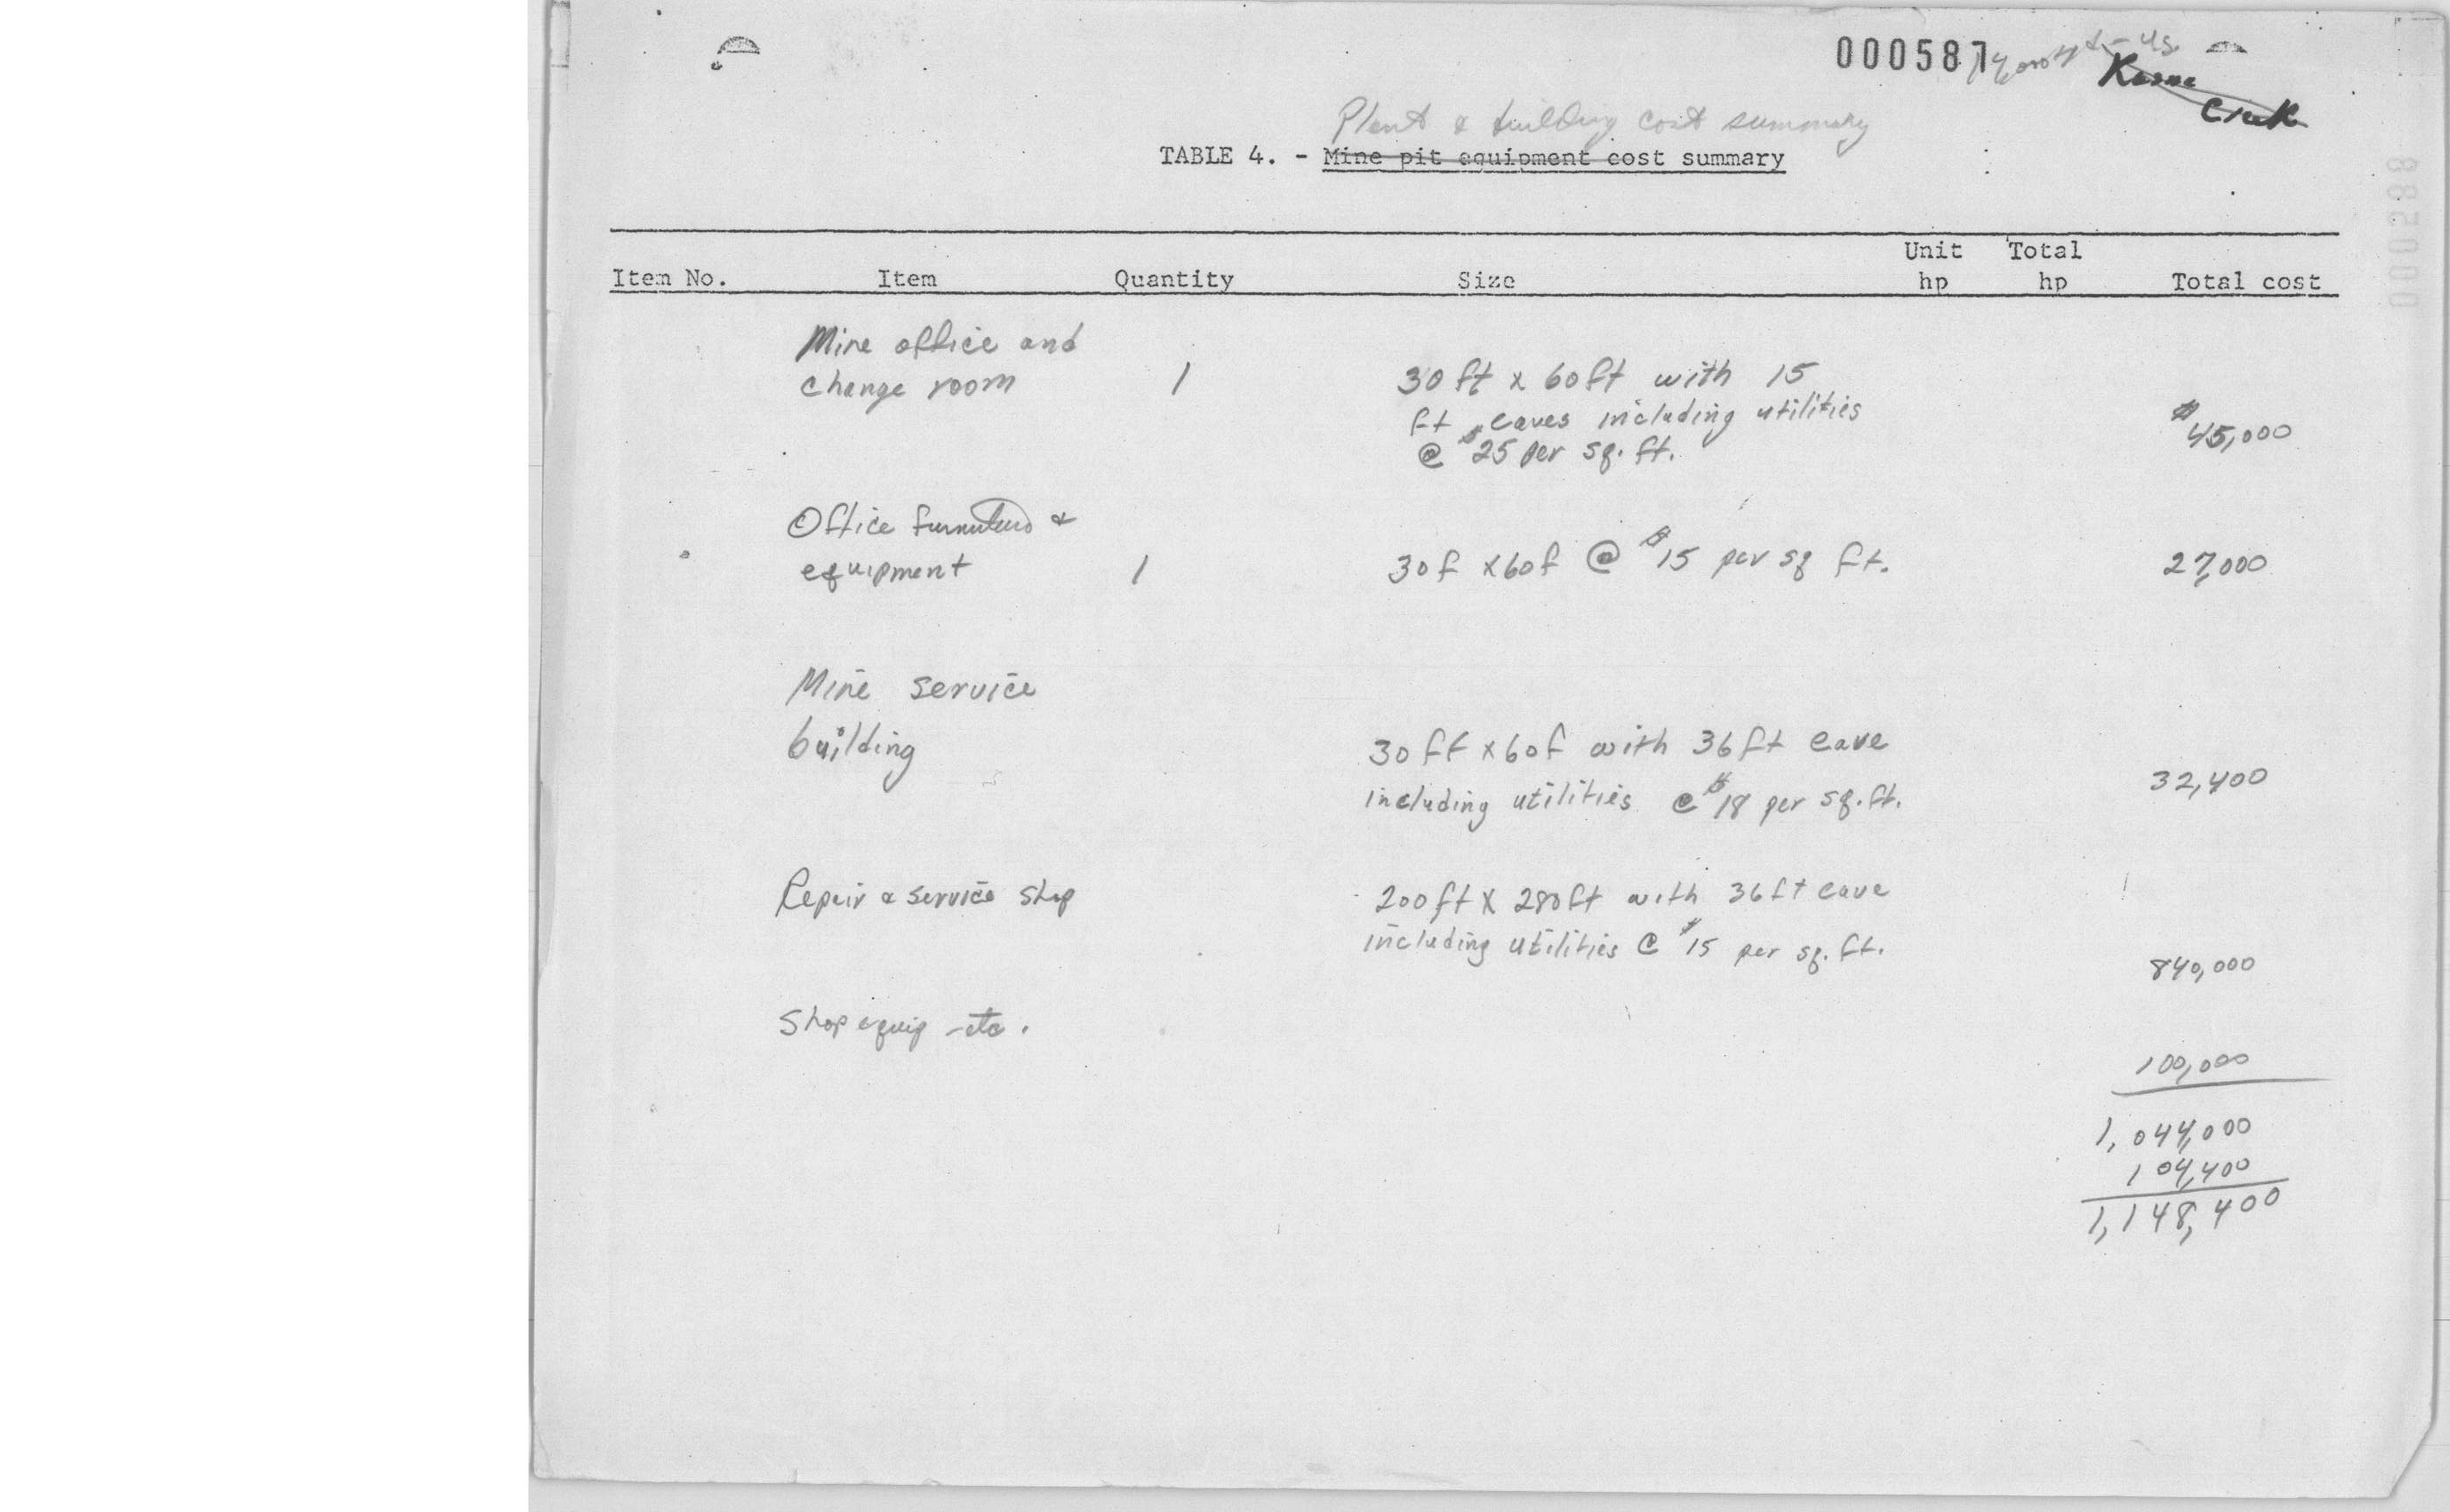 000587
Creek
Plant & building cost summary
TABLE 4. - Mine pit equipment cost summary
Unit Total
Item No. Item Quantity Size hp hp Total cost
Mine office and
change room 1 30 ft x 60 ft with 15
ft eaves including utilities
@ $25 per sq. ft. $45,000
Office furniture &
equipment 1 30 f x 60 f @ $15 per sq ft. 27,000
Mine service
building 30 ft x 60 f with 36 ft eave
including utilities @ $18 per sq. ft. 32,400
Repair & service shop 200 ft x 280 ft with 36 ft eave
including utilities @ $15 per sq. ft.
840,000
Shop equip - etc.
100,000
1,044,000
104,400
1,148,400
000588